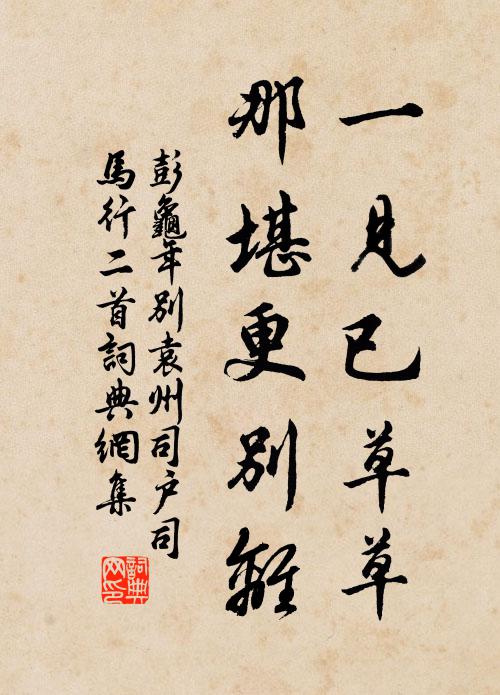 一見已草草
那堪更別離
彭龜年別袁州司戶司
馬行二首詞典網集
詞典
网印